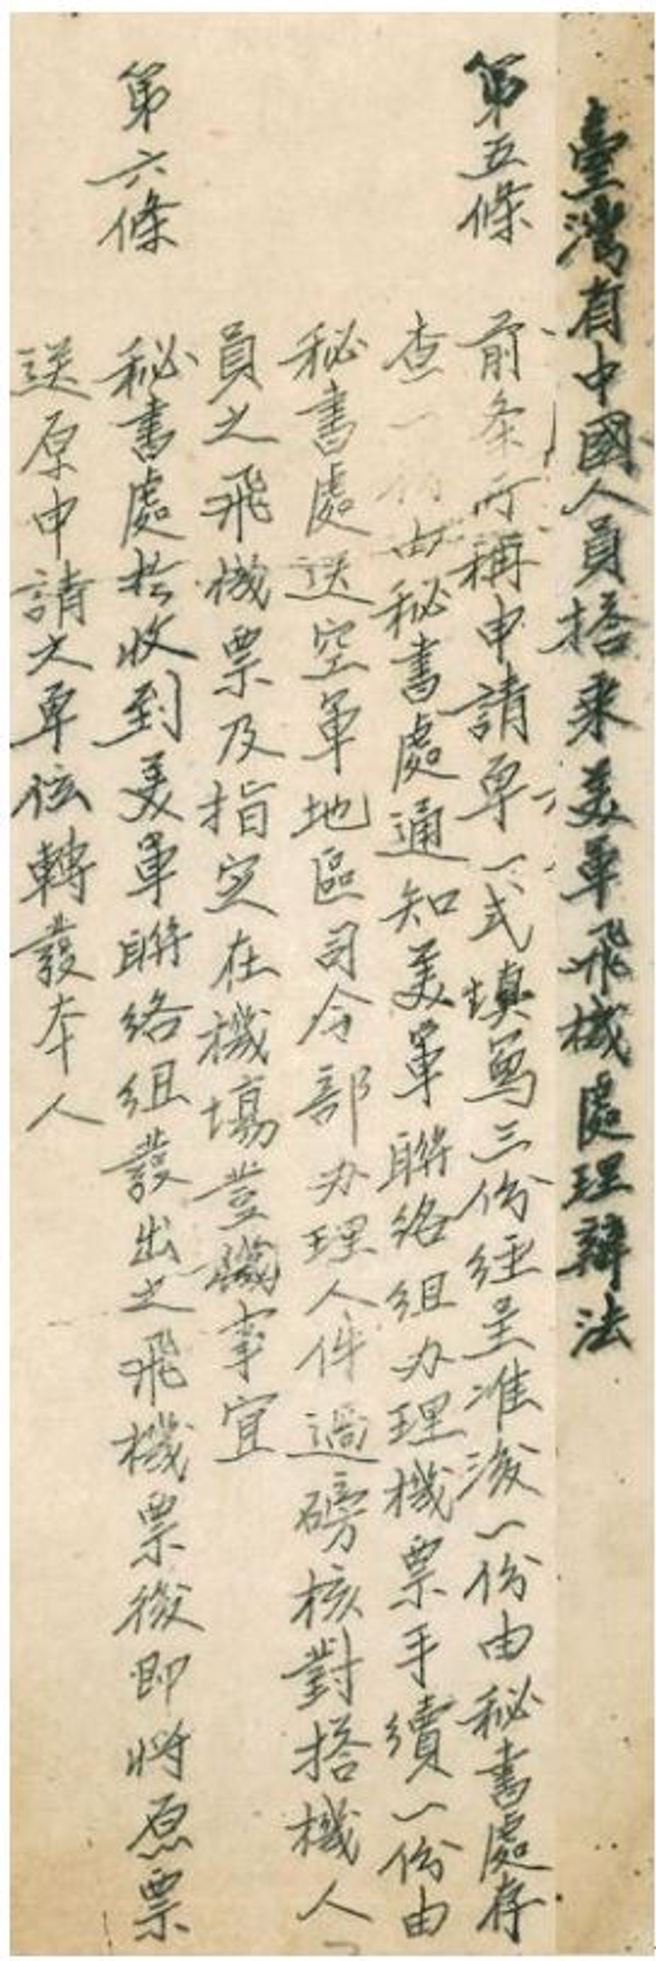 臺灣有中國人員搭乘美軍飛機處理辦法
第五條 前条所稱申請单一式填寫三份經呈准後一份由秘書處存
查一份由秘書處通知美軍聯絡組办理機票手續一份由
秘書處送空軍地區司令部办理人件過磅核對搭機人
員之飛機票及指定在機場登機事宜
第六條 秘書處於收到美軍聯絡組發出之飛機票後即將原票
送原申請之单位轉發本人